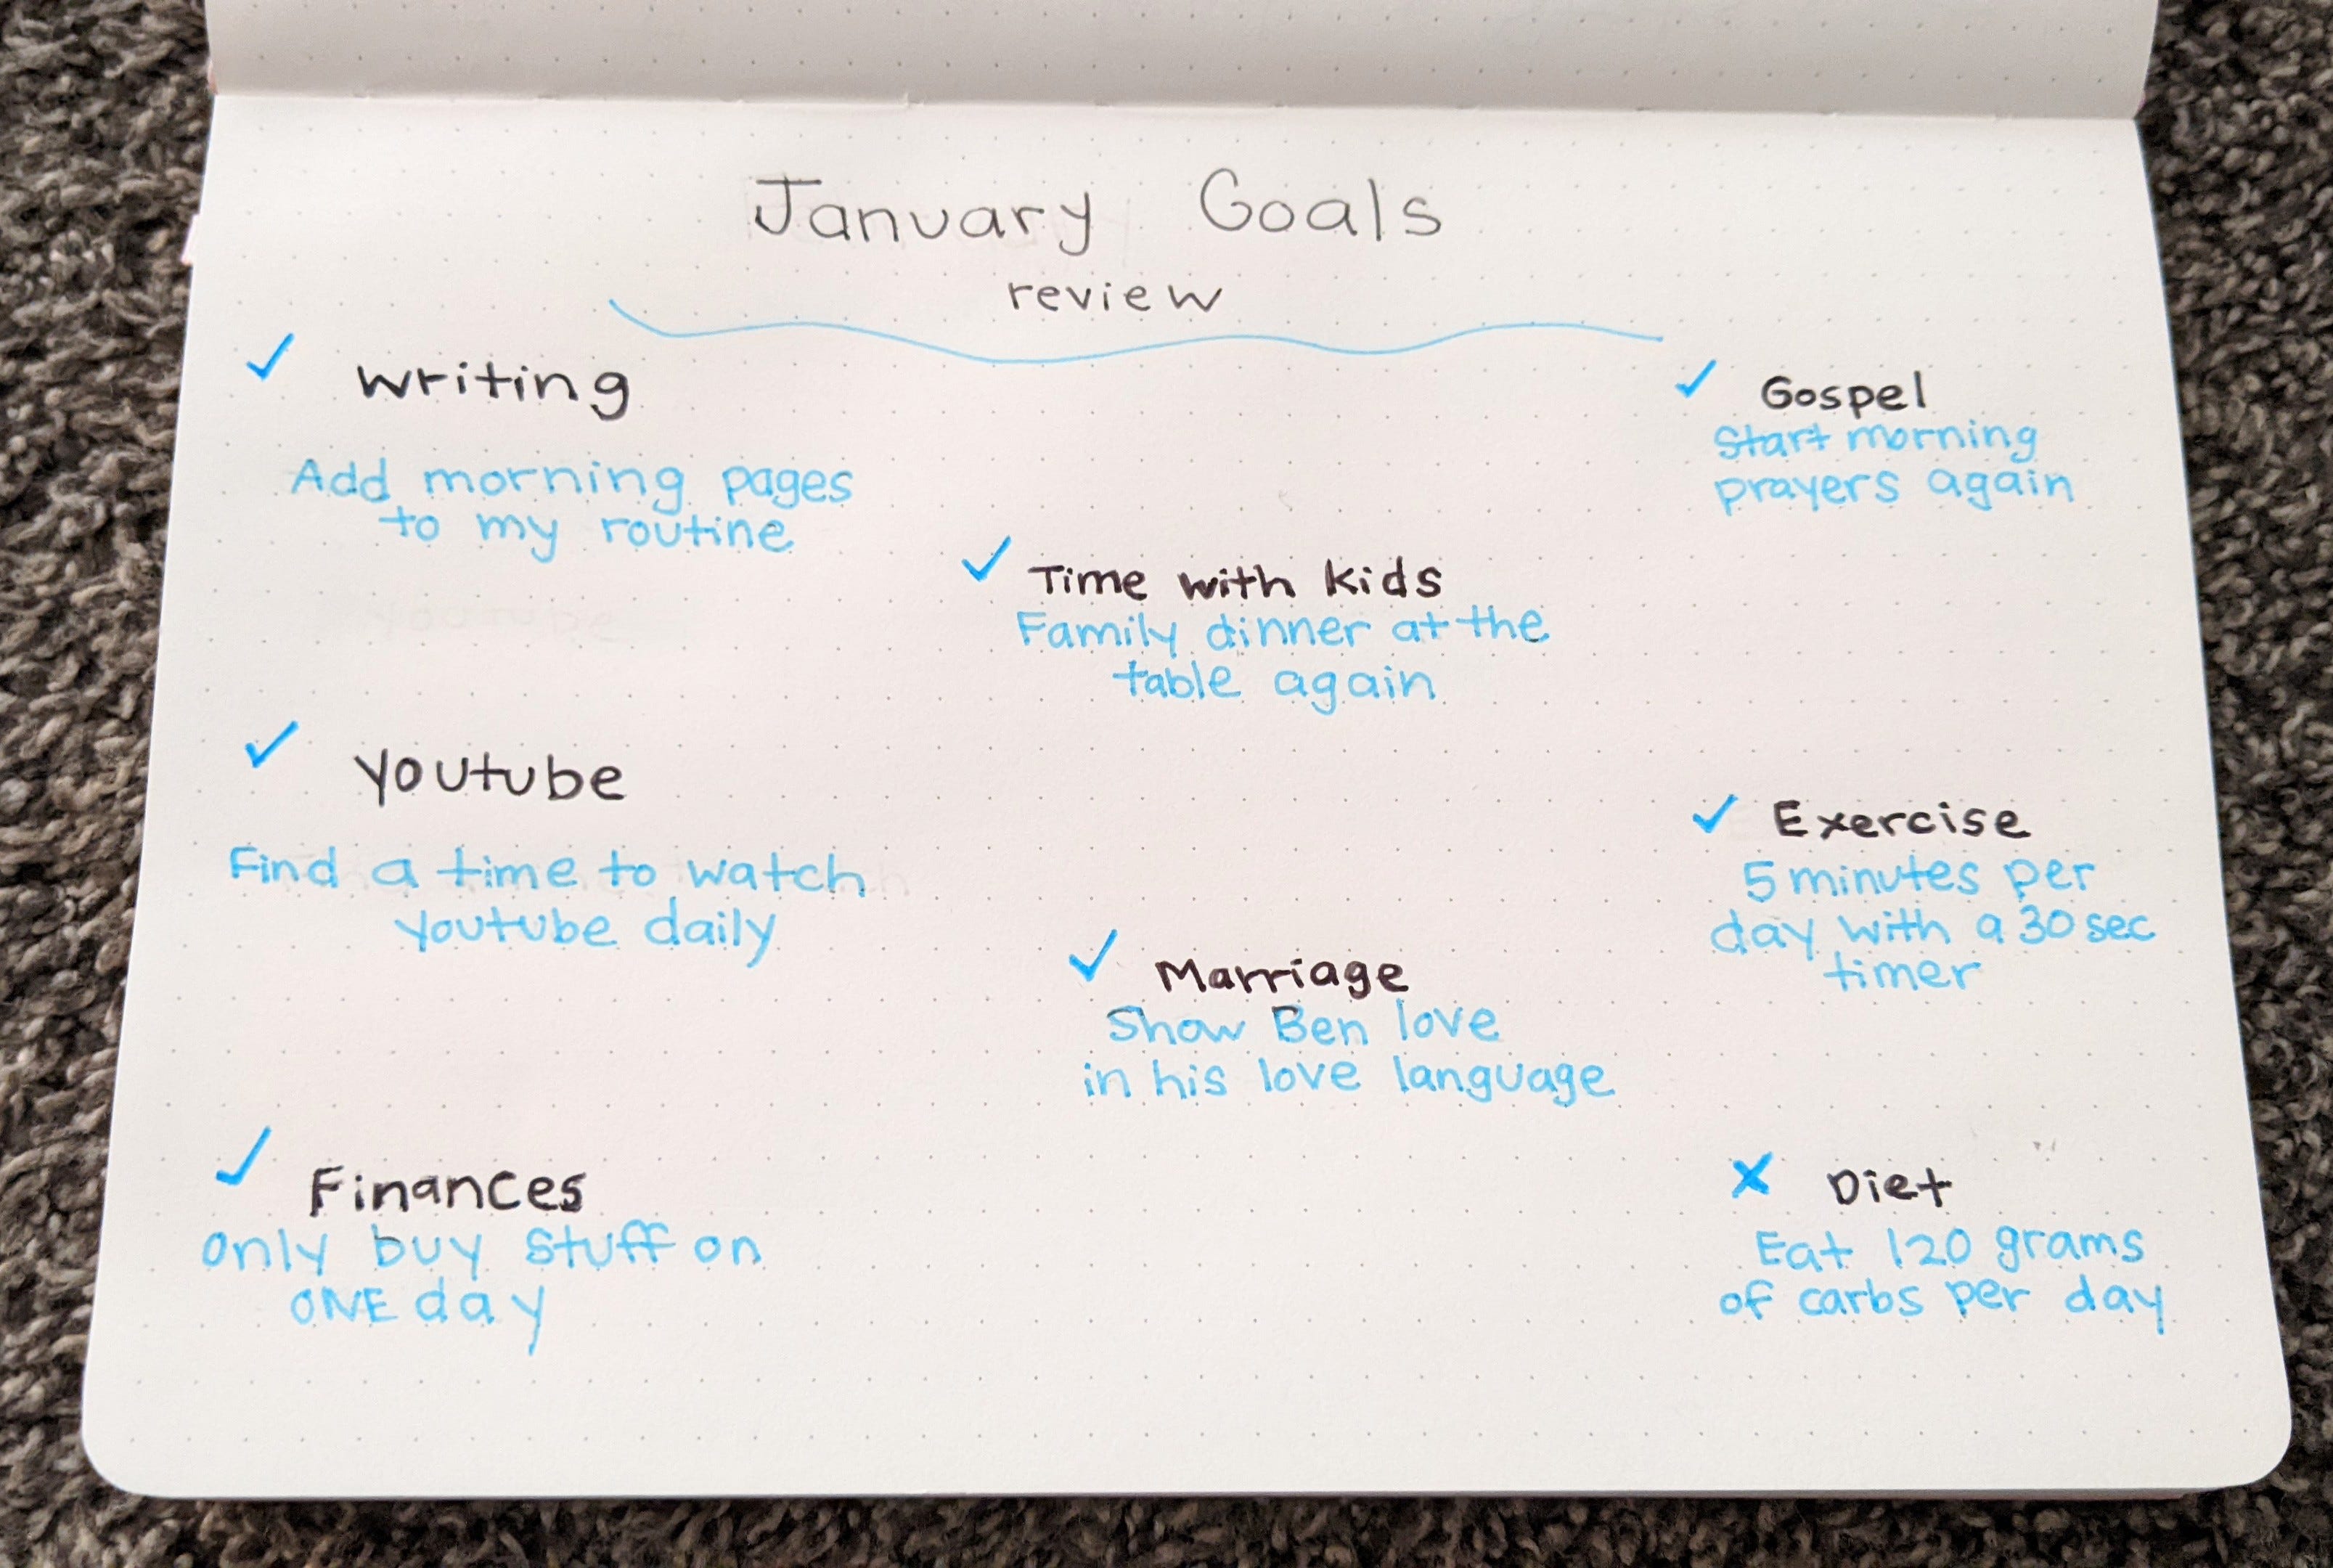 January Goals
review
✓ Writing
Add morning pages
to my routine
✓ Youtube
Find a time to watch
Youtube daily
✓ Finances
Only buy stuff on
ONE day
✓ Time with kids
Family dinner at the
table again
✓ Marriage
Show Ben love
in his love language
✓ Gospel
Start morning
prayers again
✓ Exercise
5 minutes per
day with a 30 sec
timer
X Diet
Eat 120 grams
of carbs per day